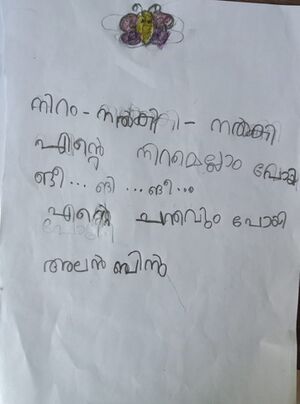 നിറം - നൽകി - നൽകി
എന്റെ നിറമെല്ലാം പോയി
ങീ... ങി ... ങീ...
എന്റെ ചന്തവും പോയി
അലൻ ബിൻ